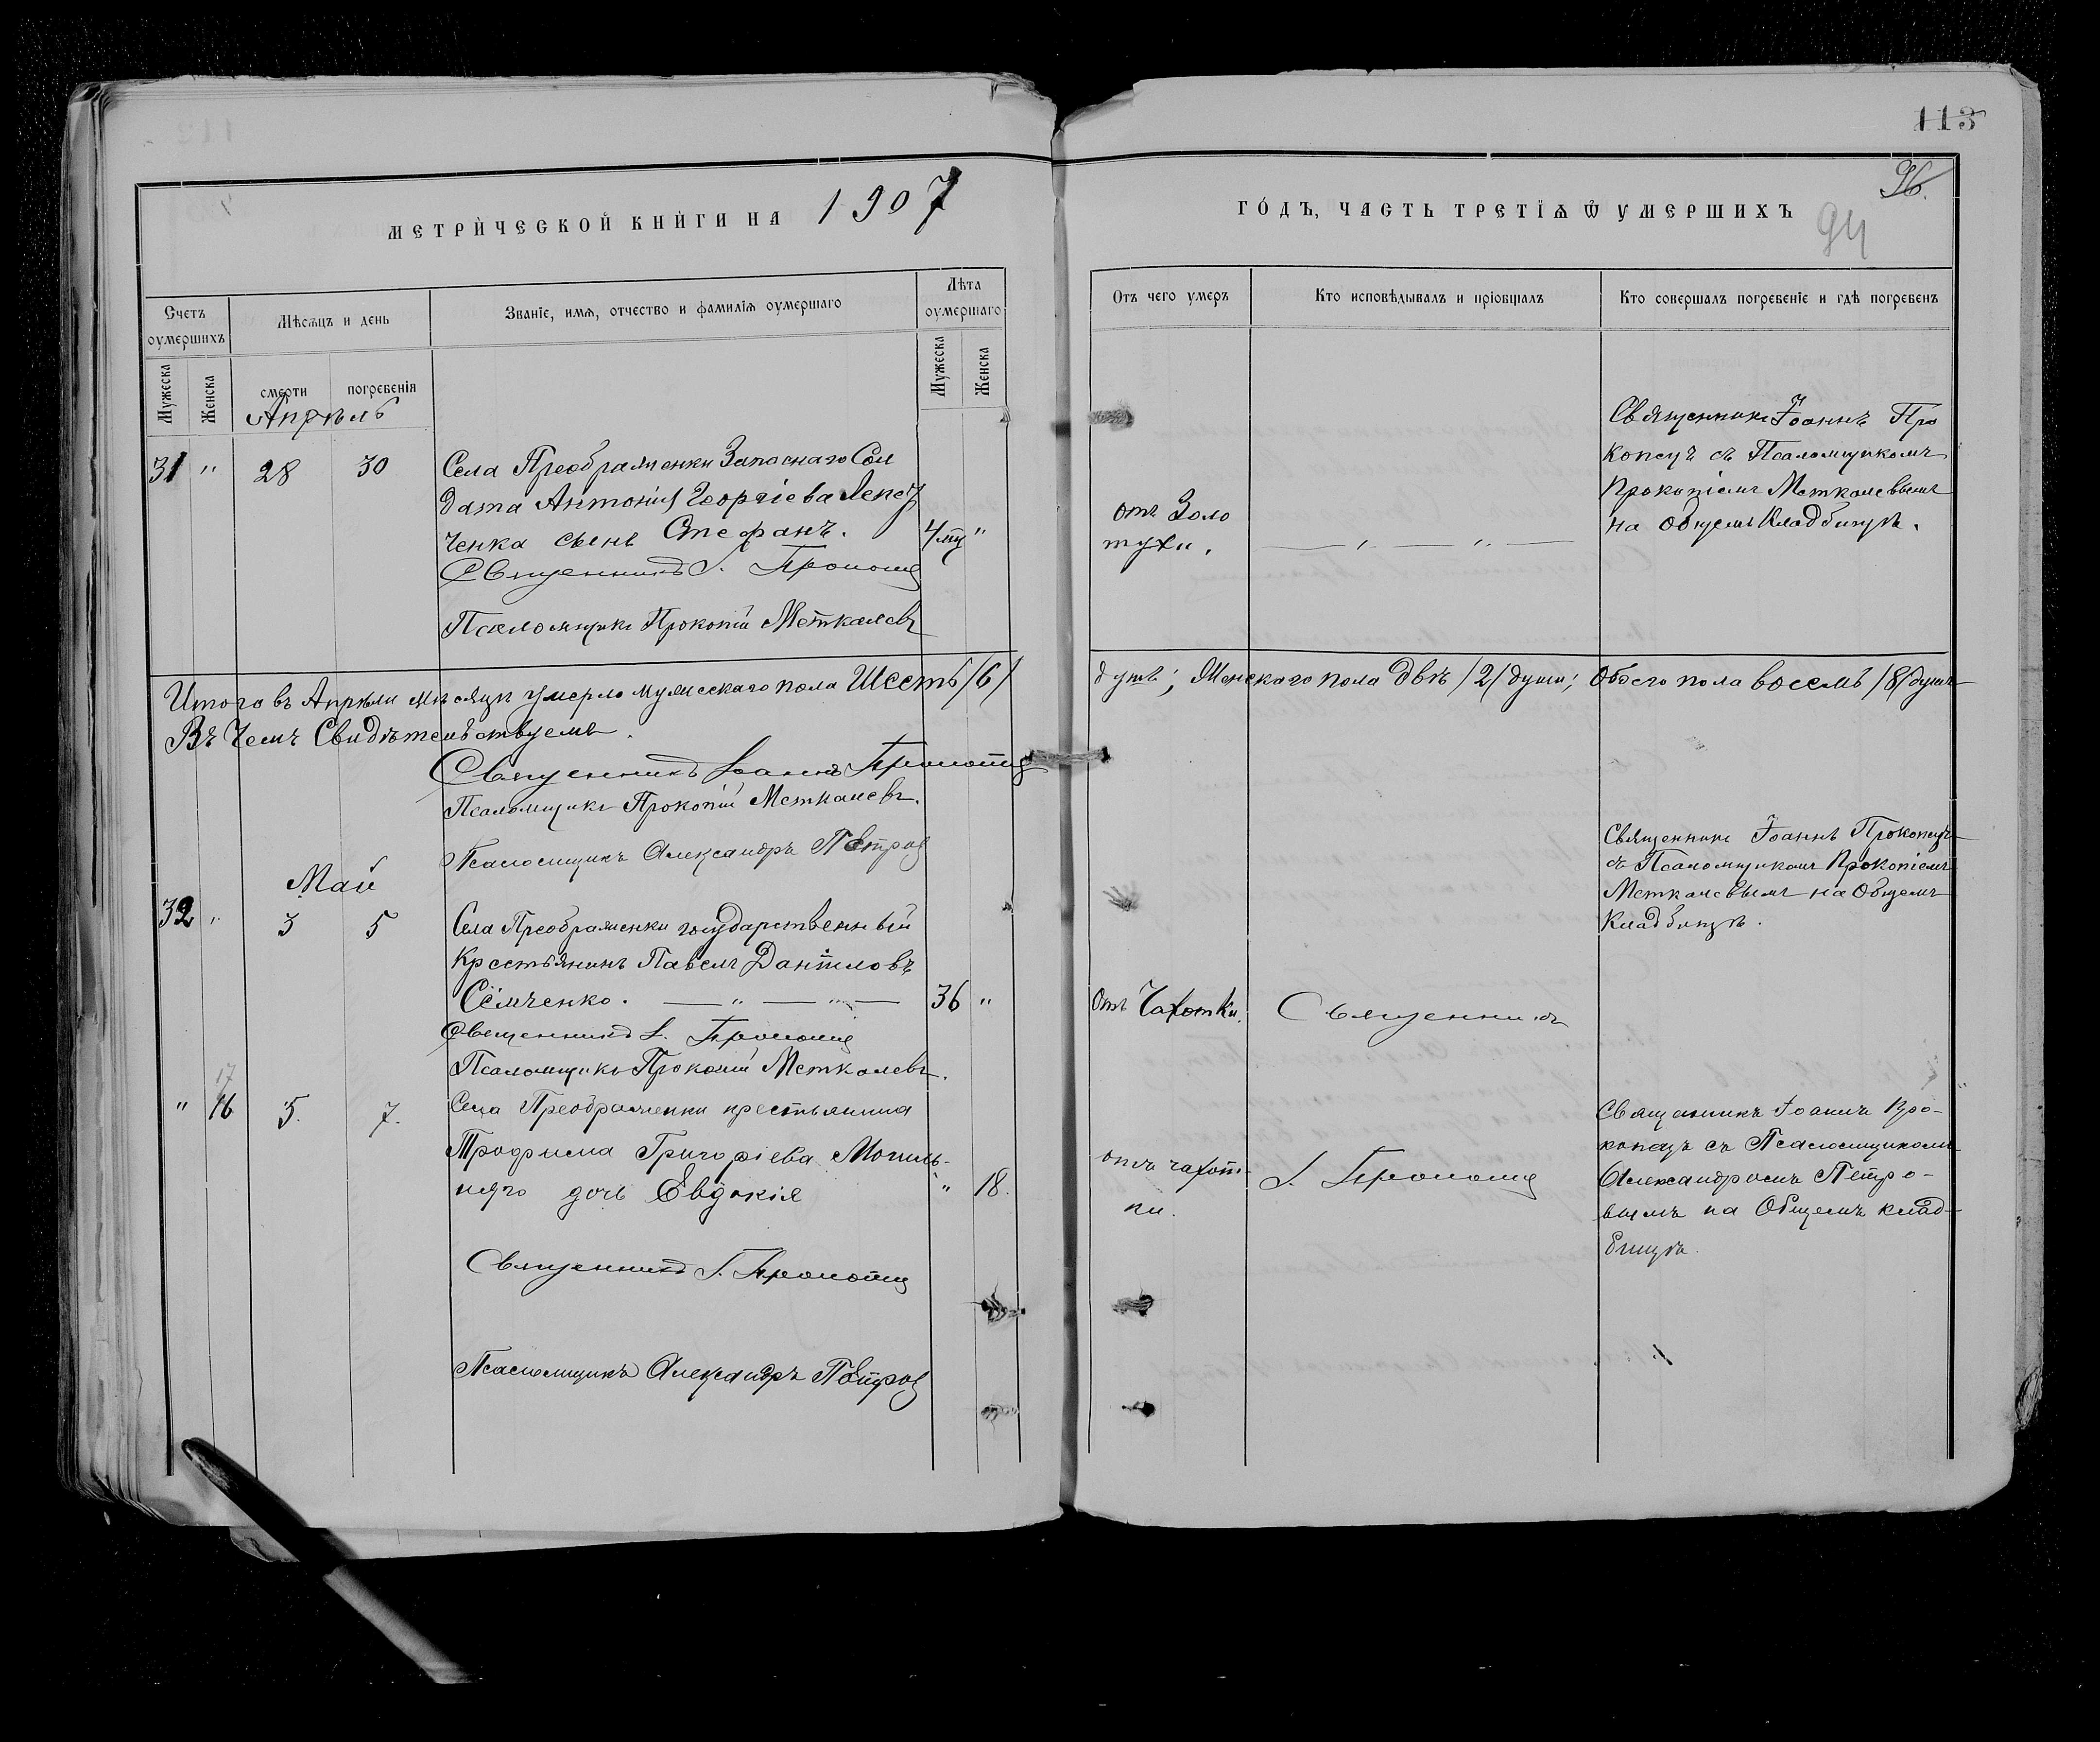 113
96.
94
МЕТРИ́ЧЕСКОЙ КНИ́ГИ НА 1907
ГО́ДЪ, ЧАСТЬ ТРЕТІѦ Ѿ УМЕРШИХЪ
Счетъ оумершихъ
Мѣсѧцъ и день
Званіе, имѧ, отчество и фамилїѧ оумершаго
Лѣта оумершаго
Мужеска
Женска
смерти
погребенїѧ
Мужеска
Женска
Отъ чего умеръ
Кто исповѣдывалъ и прїобщалъ
Кто совершалъ погребенїе и гдѣ погребенъ
Апрѣль
31 " 28 30
Села Преображенки Запаснаго Сол
дата Антонія Георгіева
ченка сынъ Стефанъ. 4 "
Священникъ І. Прокопец
Псаломщикъ Прокопій Меткалевъ
отъ Золо
тухи.
Священникъ Іоаннъ Про
копецъ съ Псаломщикомъ
Прокопіемъ Меткалевымъ
на общемъ Кладбищѣ.
Итого въ Апрѣли мѣсяцѣ умерло мужескаго пола Шесть /6/ душъ; Женскаго пола двѣ /2/ души; Обоего пола восемь /8/ душъ
Въ Чемъ Свидѣтельствуемъ.
Священникъ Іоаннъ Прокопец
Псаломщикъ Прокопій Меткалевъ.
Псаломщикъ Александръ Петров
Май
32 " 3 5
Села Преображенки государственный
Крестьянинъ Павелъ Даніиловъ
Семченко. — " — " — 36 "
Священникъ І. Прокопец
Псаломщикъ Прокопій Меткалевъ.
Отъ Чахотки.
Священникъ
Священникъ Іоаннъ Прокопецъ
съ Псаломщикомъ Прокопіемъ
Меткалевымъ на Общемъ
Кладбищѣ.
17
" 16 5. 7.
Села Преображенки крестьянина
Трофима Григоріева Могиль-
наго дочь Евдокія " 18.
Священникъ І. Прокопец
Псаломщикъ Александръ Петров
отъ чахот-
ки.
І. Прокопец
Священникъ Іоаннъ Про-
копецъ съ Псаломщикомъ
Александромъ Петро-
вымъ на Общемъ клад-
бищѣ.